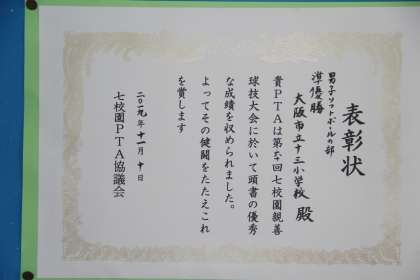 表彰状
男子ソフトボールの部
準優勝
大阪市立十三小学校 殿
貴PTAは第回七校園親善
球技大会に於いて頭書の優秀
な成績を収められました。
よってその健闘をたたえこれ
を賞します
二〇一九年十一月十日
七校園PTA協議会